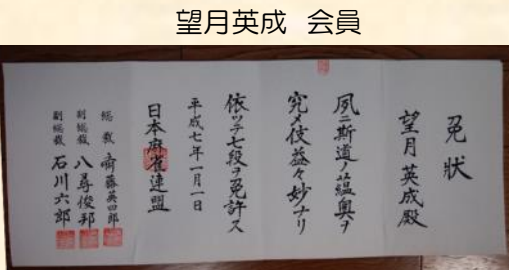 望月英成 会員
免状
望月英成殿
夙ニ斯道ノ蘊奥ヲ
究メ伎益々妙ナリ
依ツテ七段ヲ免許ス
平成七年一月一日
日本麻雀連盟
総裁 齋藤英四郎
副総裁 八尋俊邦
副総裁 石川六郎